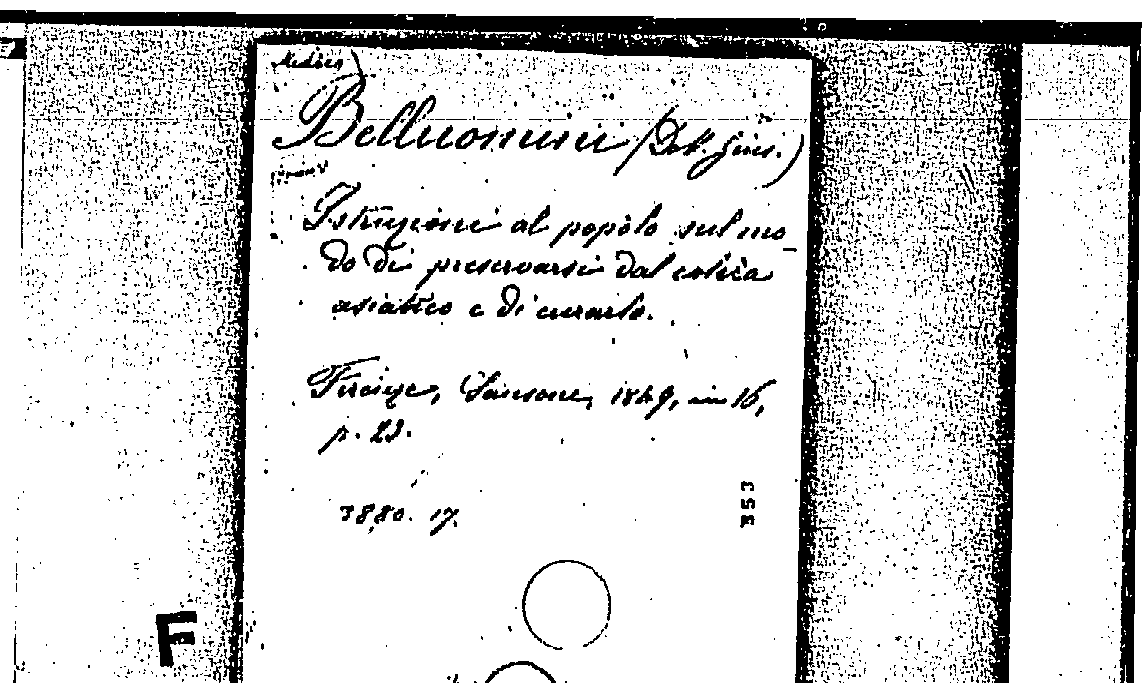 Medico)
Belluomini (Dott. Gius.)
Istruzione al popolo sul mo-
do di preservarsi dal colera
asiatico e di curarlo.
Firenze, Sansone, 1849, in 16,
p. 23.
3880. 17.
353
F